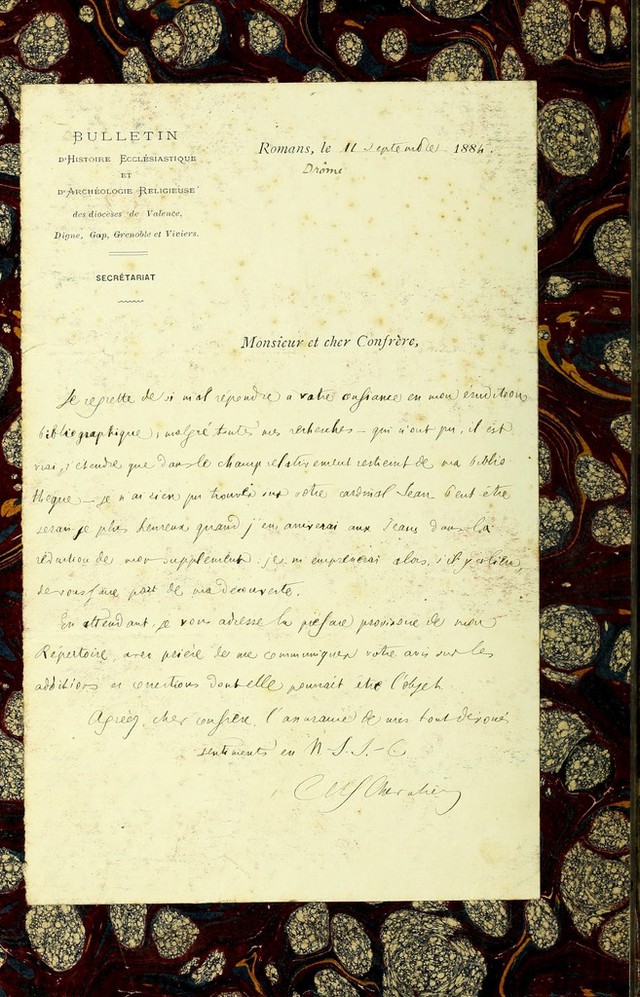 BULLETIN
D'HISTOIRE ECCLÉSIASTIQUE
ET
D'ARCHÉOLOGIE RELIGIEUSE
des diocèses de Valence,
Digne, Gap, Grenoble et Viviers.
SECRÉTARIAT
Romans, le 11 septembre 1884.
Drôme
Monsieur et cher Confrère,
Je regrette de si mal répondre à votre confiance en mon érudition
bibliographique ; malgré toutes mes recherches – qui n'ont pu, il est
vrai, s'étendre que dans le champ relativement restreint de ma biblio
thèque – je n'ai rien pu trouver sur votre cardinal Jean. Peut-être
serai-je plus heureux quand j'en arriverai aux Jeans dans la
rédaction de mon supplément : je m'empresserai alors, s'il y a lieu,
de vous faire part de ma découverte.
En attendant, je vous adresse la préface provisoire de mon
Répertoire, avec prière de me communiquer votre avis sur les
additions et corrections dont elle pourrait être l'objet.
Agréez, cher confrère, l'assurance de mes tout dévoués
sentiments en N.-S. J.-C.
Chevalier